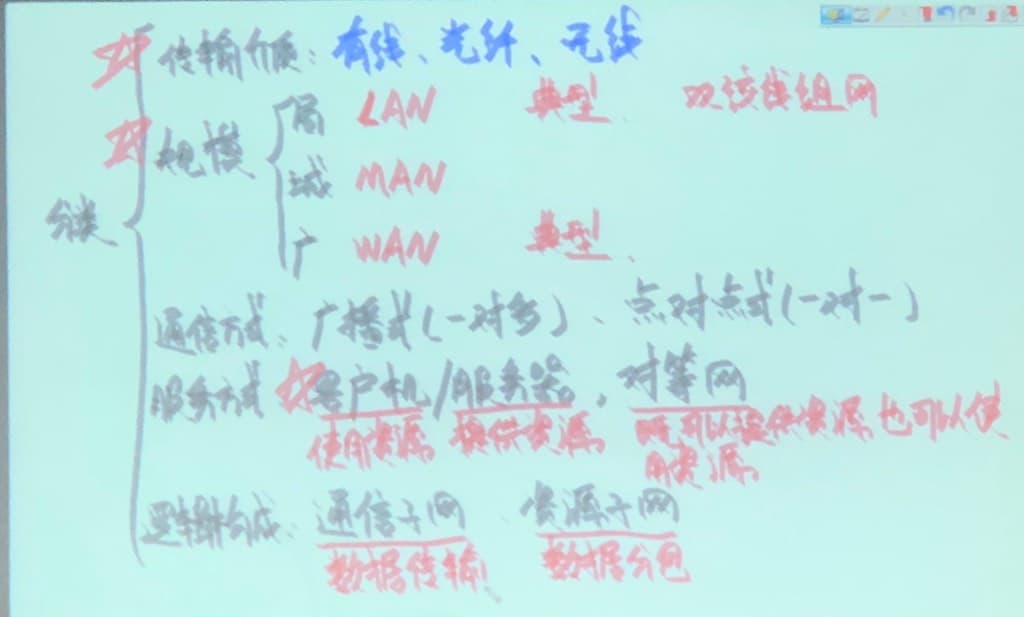 分类
传输介质：有线、光纤、无线
规模
局 LAN 典型 双绞线组网
城 MAN
广 WAN 典型
通信方式：广播式(一对多)、点对点式(一对一)
服务方式 客户机/服务器，对等网
使用资源 提供资源 既可以提供资源也可以使
用资源
逻辑构成：通信子网 资源子网
数据传输 数据分包